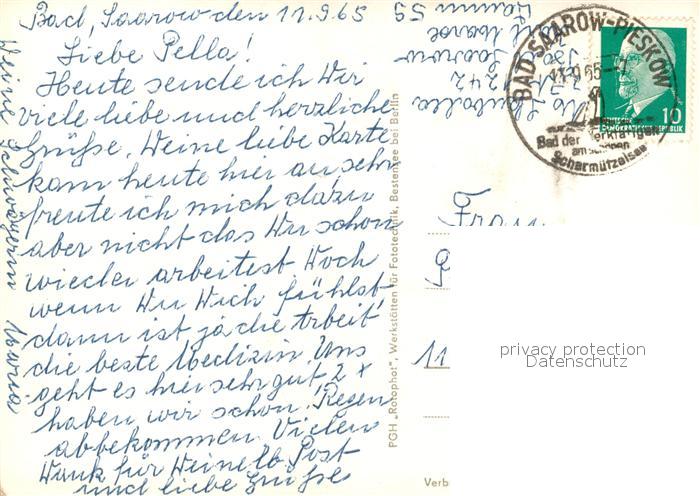 Bad, Saarow den 11.9.65
Liebe Pella!
Heute sende ich Dir
viele liebe und herzliche
Grüße. Deine liebe Karte
kam heute hier an, sehr
freute ich mich dazu
aber nicht das Du schon
wieder arbeitest Doch
wenn Du Dich fühlst
dann ist ja die Arbeit
die beste Medizin Uns
geht es hier sehr gut, 2 x
haben wir schon Regen
abbekommen. Vielen
Dank für Deine lb Post
und liebe Grüße
Deine Schwägerin Maria
PGH „Rotophot“, Werkstätten für Fototechnik, Bestensee bei Berlin
Saarow
242
BAD SAAROW-PIESKOW
11.9.65
Bad der Werktätigen
am schönen
Scharmützelsee
10
DEUTSCHE
DEMOKRATISCHE REPUBLIK
Frau
11
privacy protection
Datenschutz
Verb